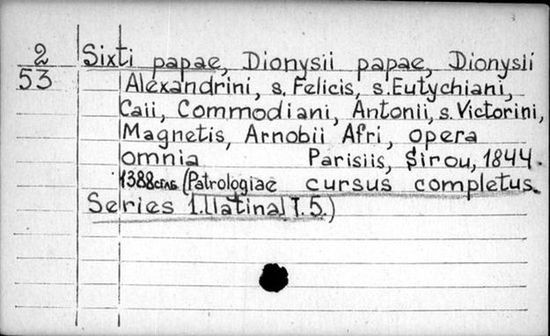 2
53
Sixti papae, Dionysii papae, Dionysii
Alexandrini, s. Felicis, s. Eutychiani,
Caii, Commodiani, Antonii, s. Victorini,
Magnetis, Arnobii Afri, opera
omnia Parisiis, Sirou, 1844.
1388 стлб (Patrologiae cursus completus.
Series 1. [latina] T. 5.)